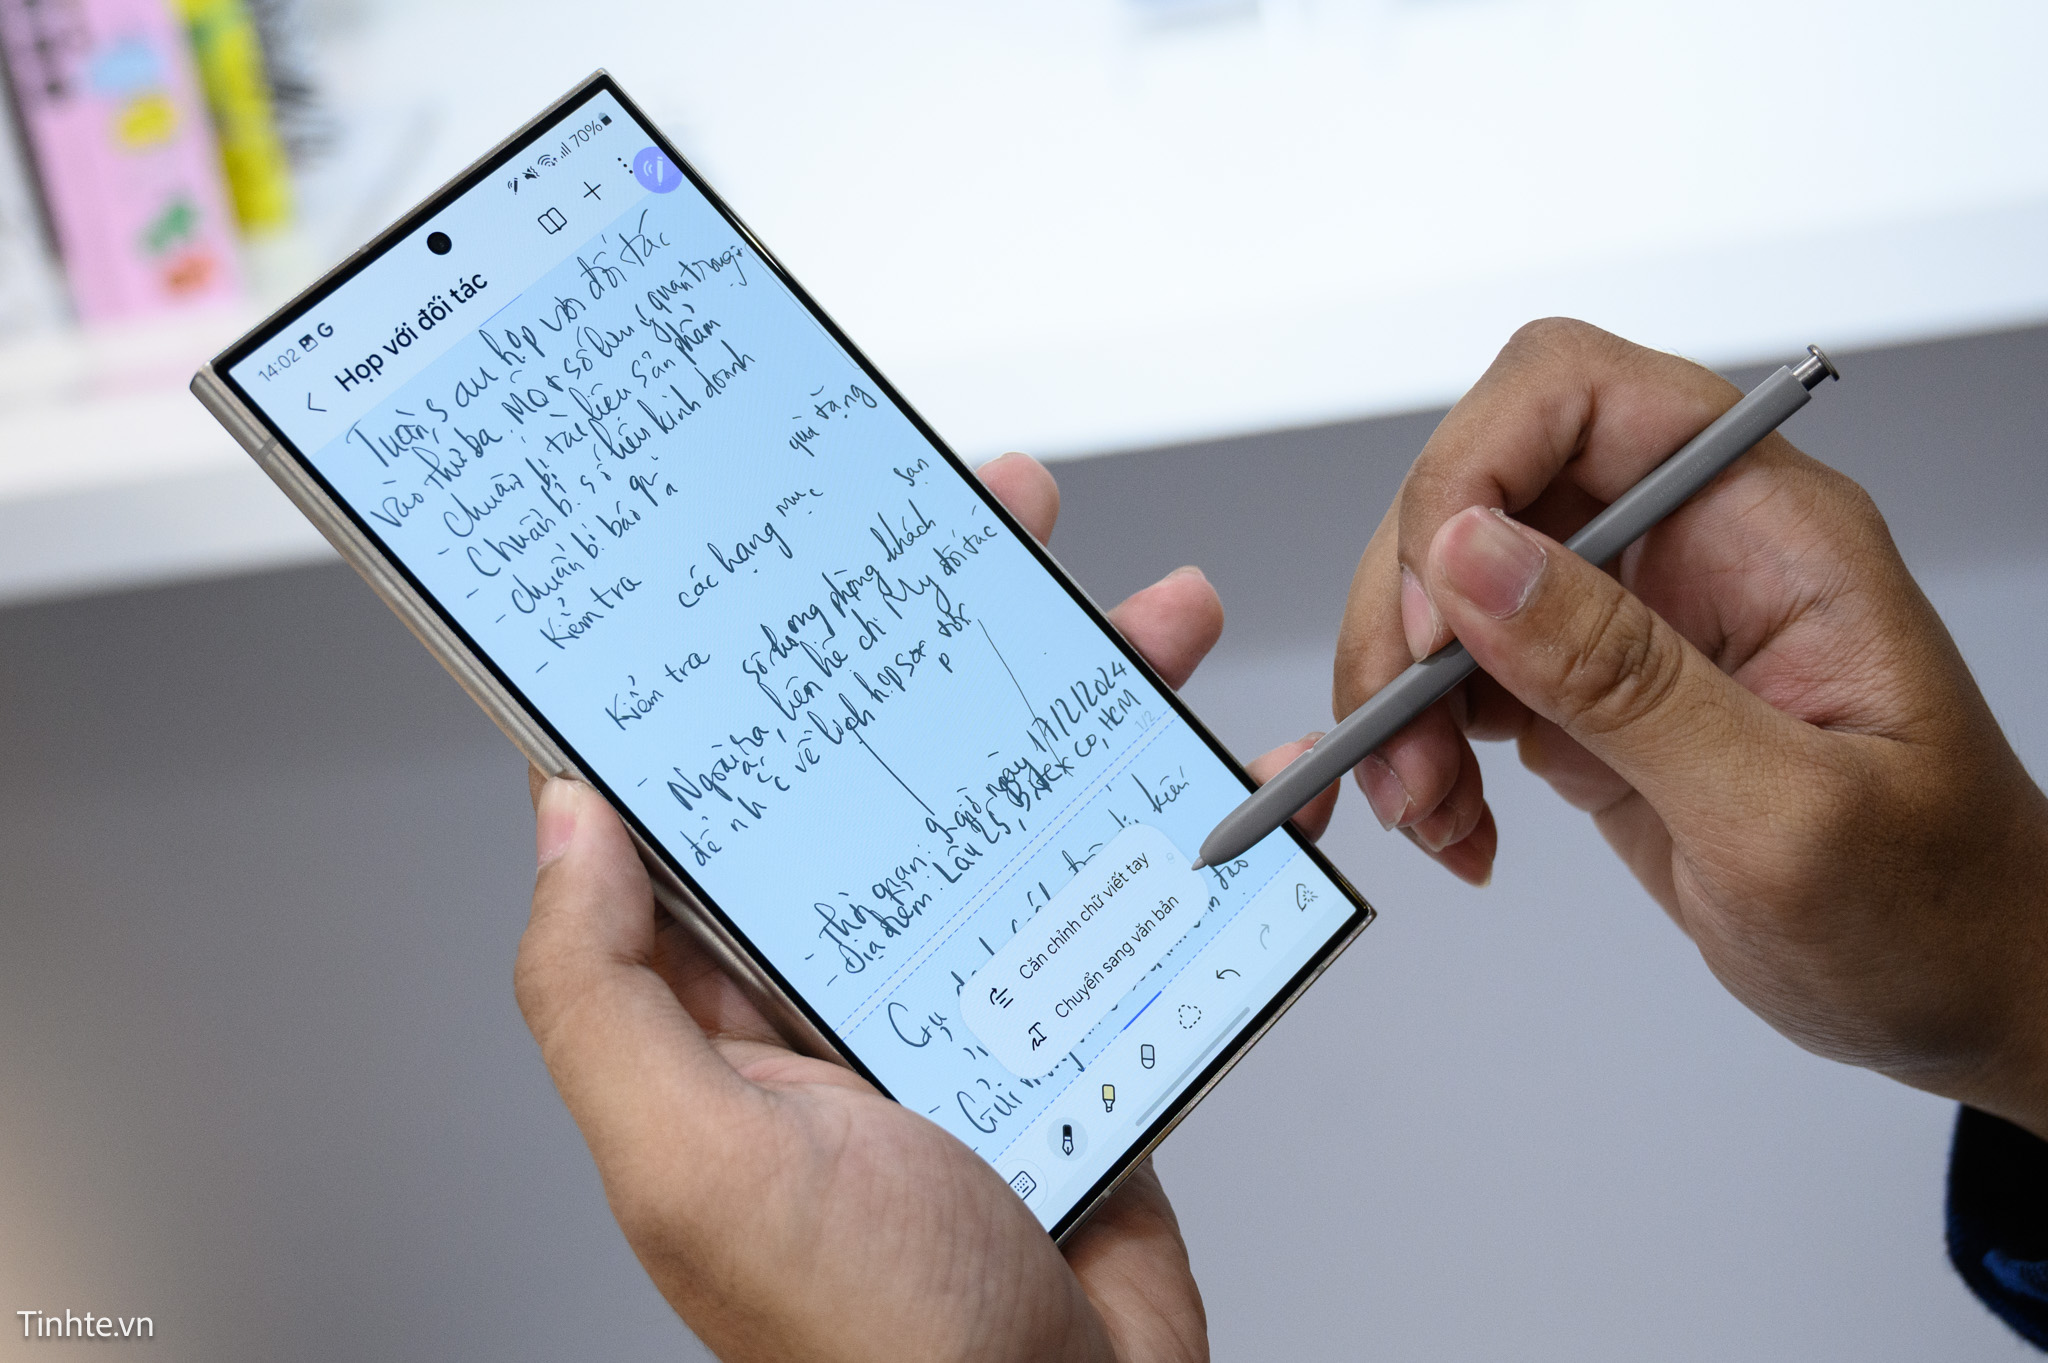 14:02 G 70%
Họp với đối tác
Tuần sau họp với đối tác
vào thứ ba. Một số lưu ý quan trọng:
- Chuẩn bị tài liệu sản phẩm
- Chuẩn bị số liệu kinh doanh
- chuẩn bị báo giá
- Kiểm tra các hạng mục quà tặng
Kiểm tra số lượng phòng khách sạn
- Ngoài ra, liên hệ chị My đối tác
để nhắc về lịch họp sắp tới
- Thời gian: 9 giờ ngày 17/12/2024
- Địa điểm: Lầu 25, Bitexco, HCM
1/2
kiến
Căn chỉnh chữ viết tay
Chuyển sang văn bản
- Gửi
Tinhte.vn